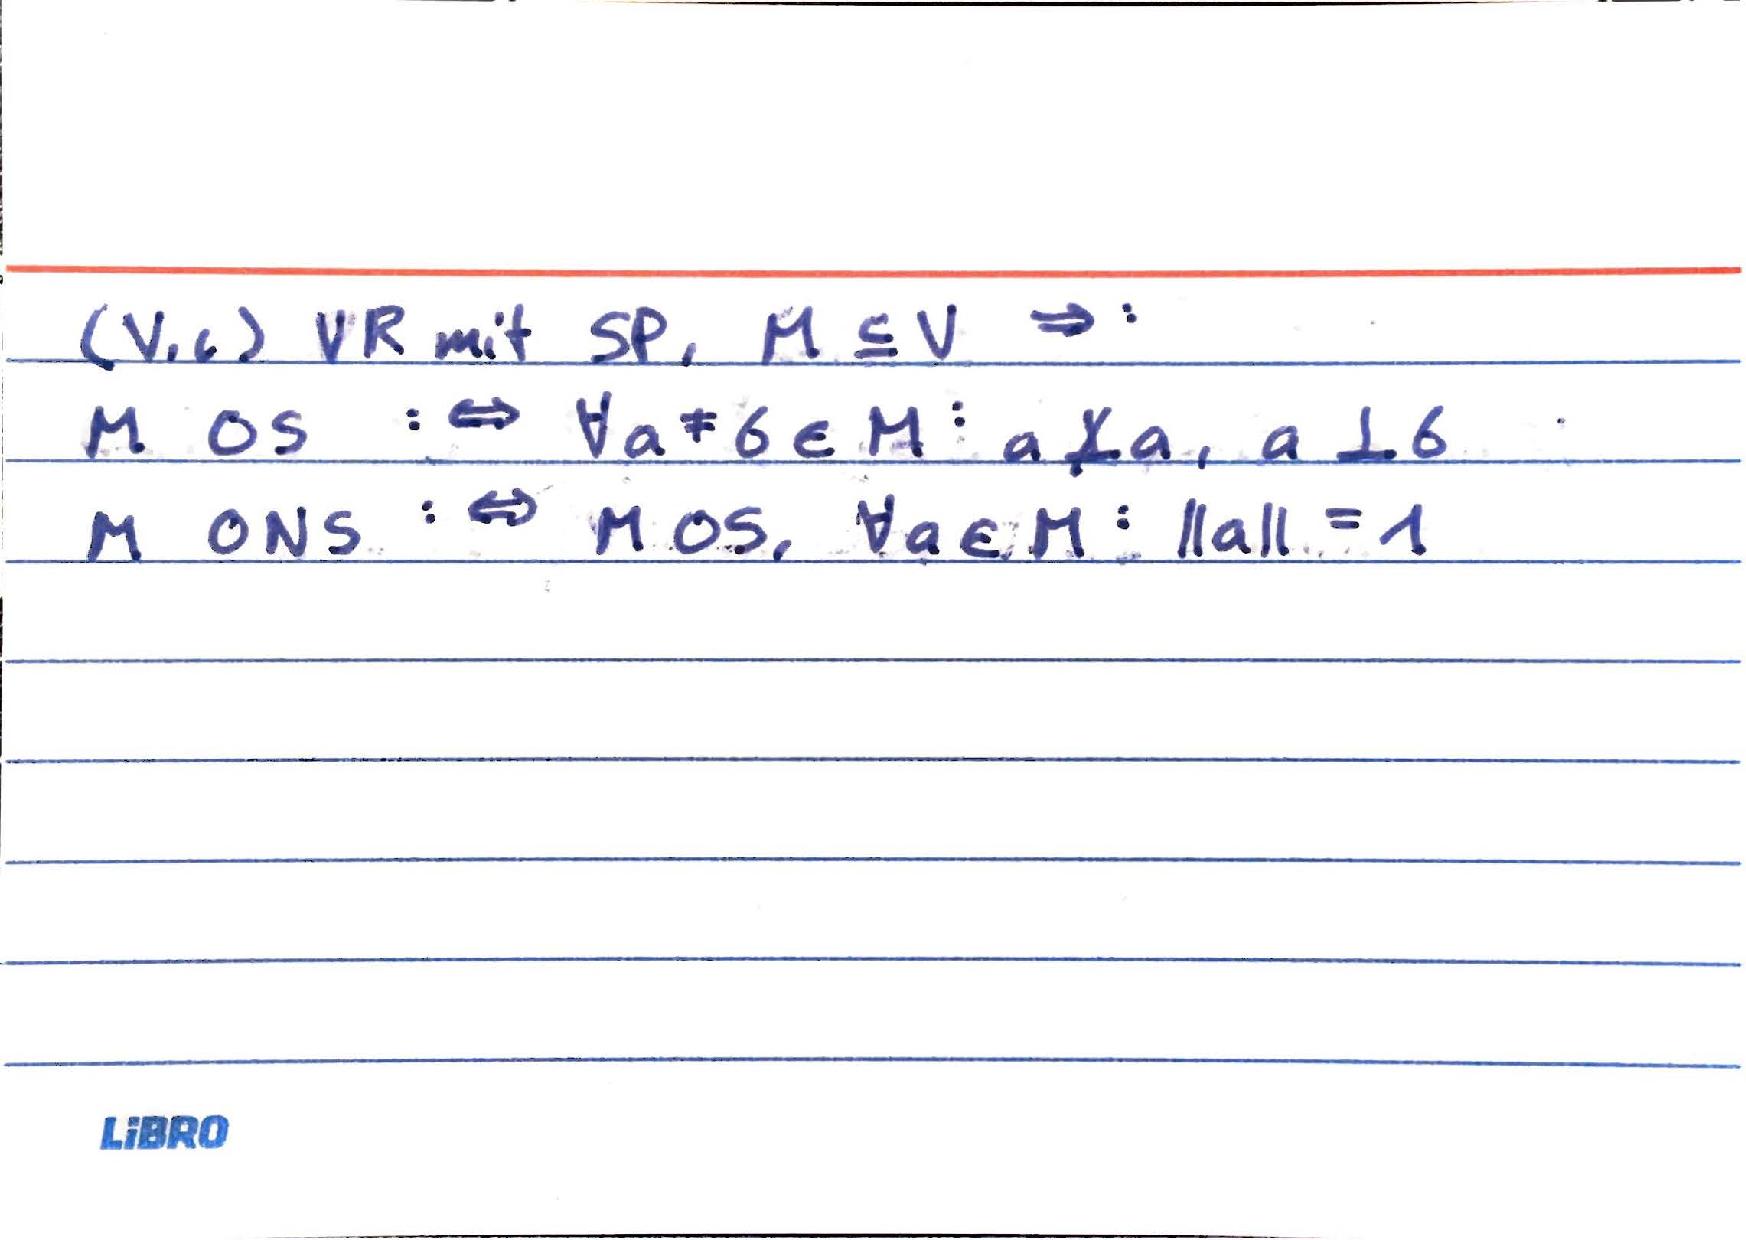 (V,ι) VR mit SP, M ⊆ V ⇒:
M OS :⇔ ∀a≠b∈M: a⊥̸a, a⊥b
M ONS :⇔ M OS, ∀a∈M: ||a|| = 1
LiBRO